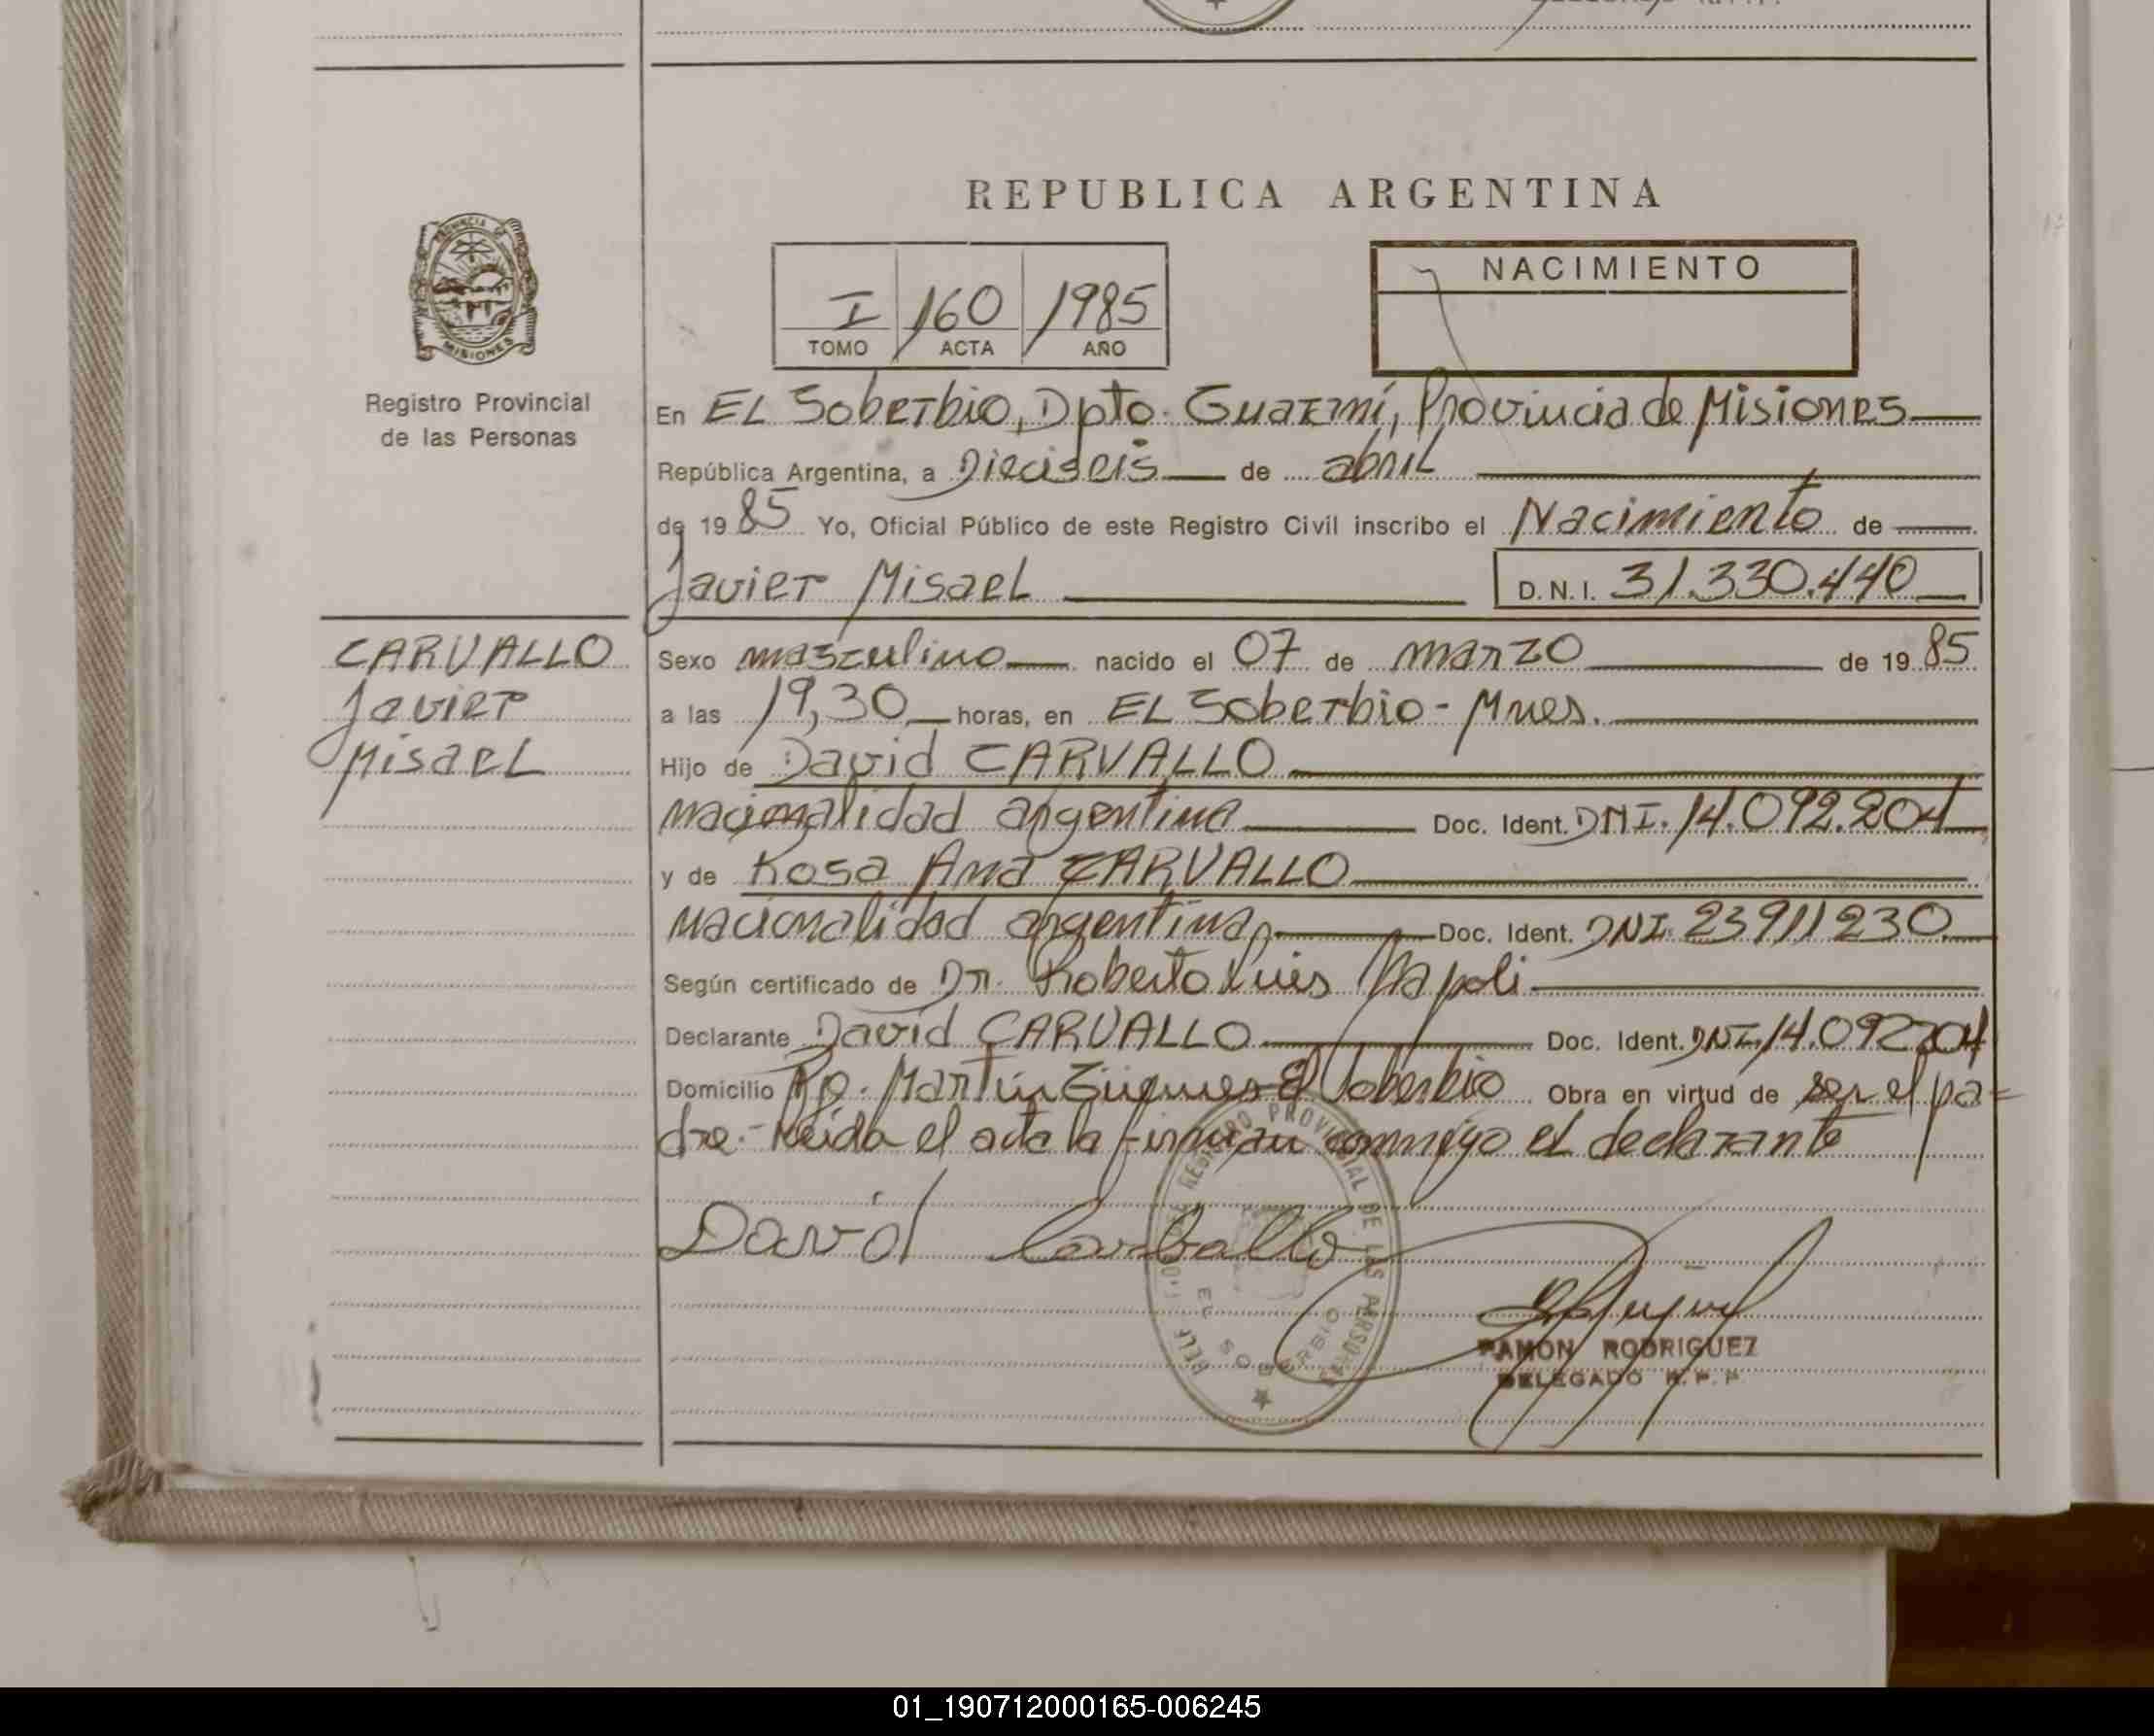 REPUBLICA ARGENTINA
PROVINCIA DE
MISIONES
Registro Provincial
de las Personas
I 160 1985
TOMO ACTA AÑO
NACIMIENTO
En EL Soberbio, Dpto. Guaraní, Provincia de Misiones
República Argentina, a Dieciseis de abril
de 1985 Yo, Oficial Público de este Registro Civil inscribo el Nacimiento de
Javier Misael D.N.I. 31.330.440
CARVALLO
Javier
Misael
Sexo masculino nacido el 07 de marzo de 1985
a las 19,30 horas, en EL Soberbio - Mnes.
Hijo de David CARVALLO
nacionalidad argentina Doc. Ident. DNI. 14.092.204
y de Rosa Ana CARVALLO
nacionalidad argentina Doc. Ident. DNI. 23911230
Según certificado de Dr. Roberto Luis Napoli
Declarante David CARVALLO Doc. Ident. DNI. 14.092204
Domicilio Martín Güemes El Soberbio Obra en virtud de ser el pa=
dre.- Leida el acta la firman conmigo el declarante
David Carballo
REGISTRO PROVINCIAL DE LAS PERSONAS
EL SOBERBIO
RAMON RODRIGUEZ
DELEGADO R.P.P
01_190712000165-006245